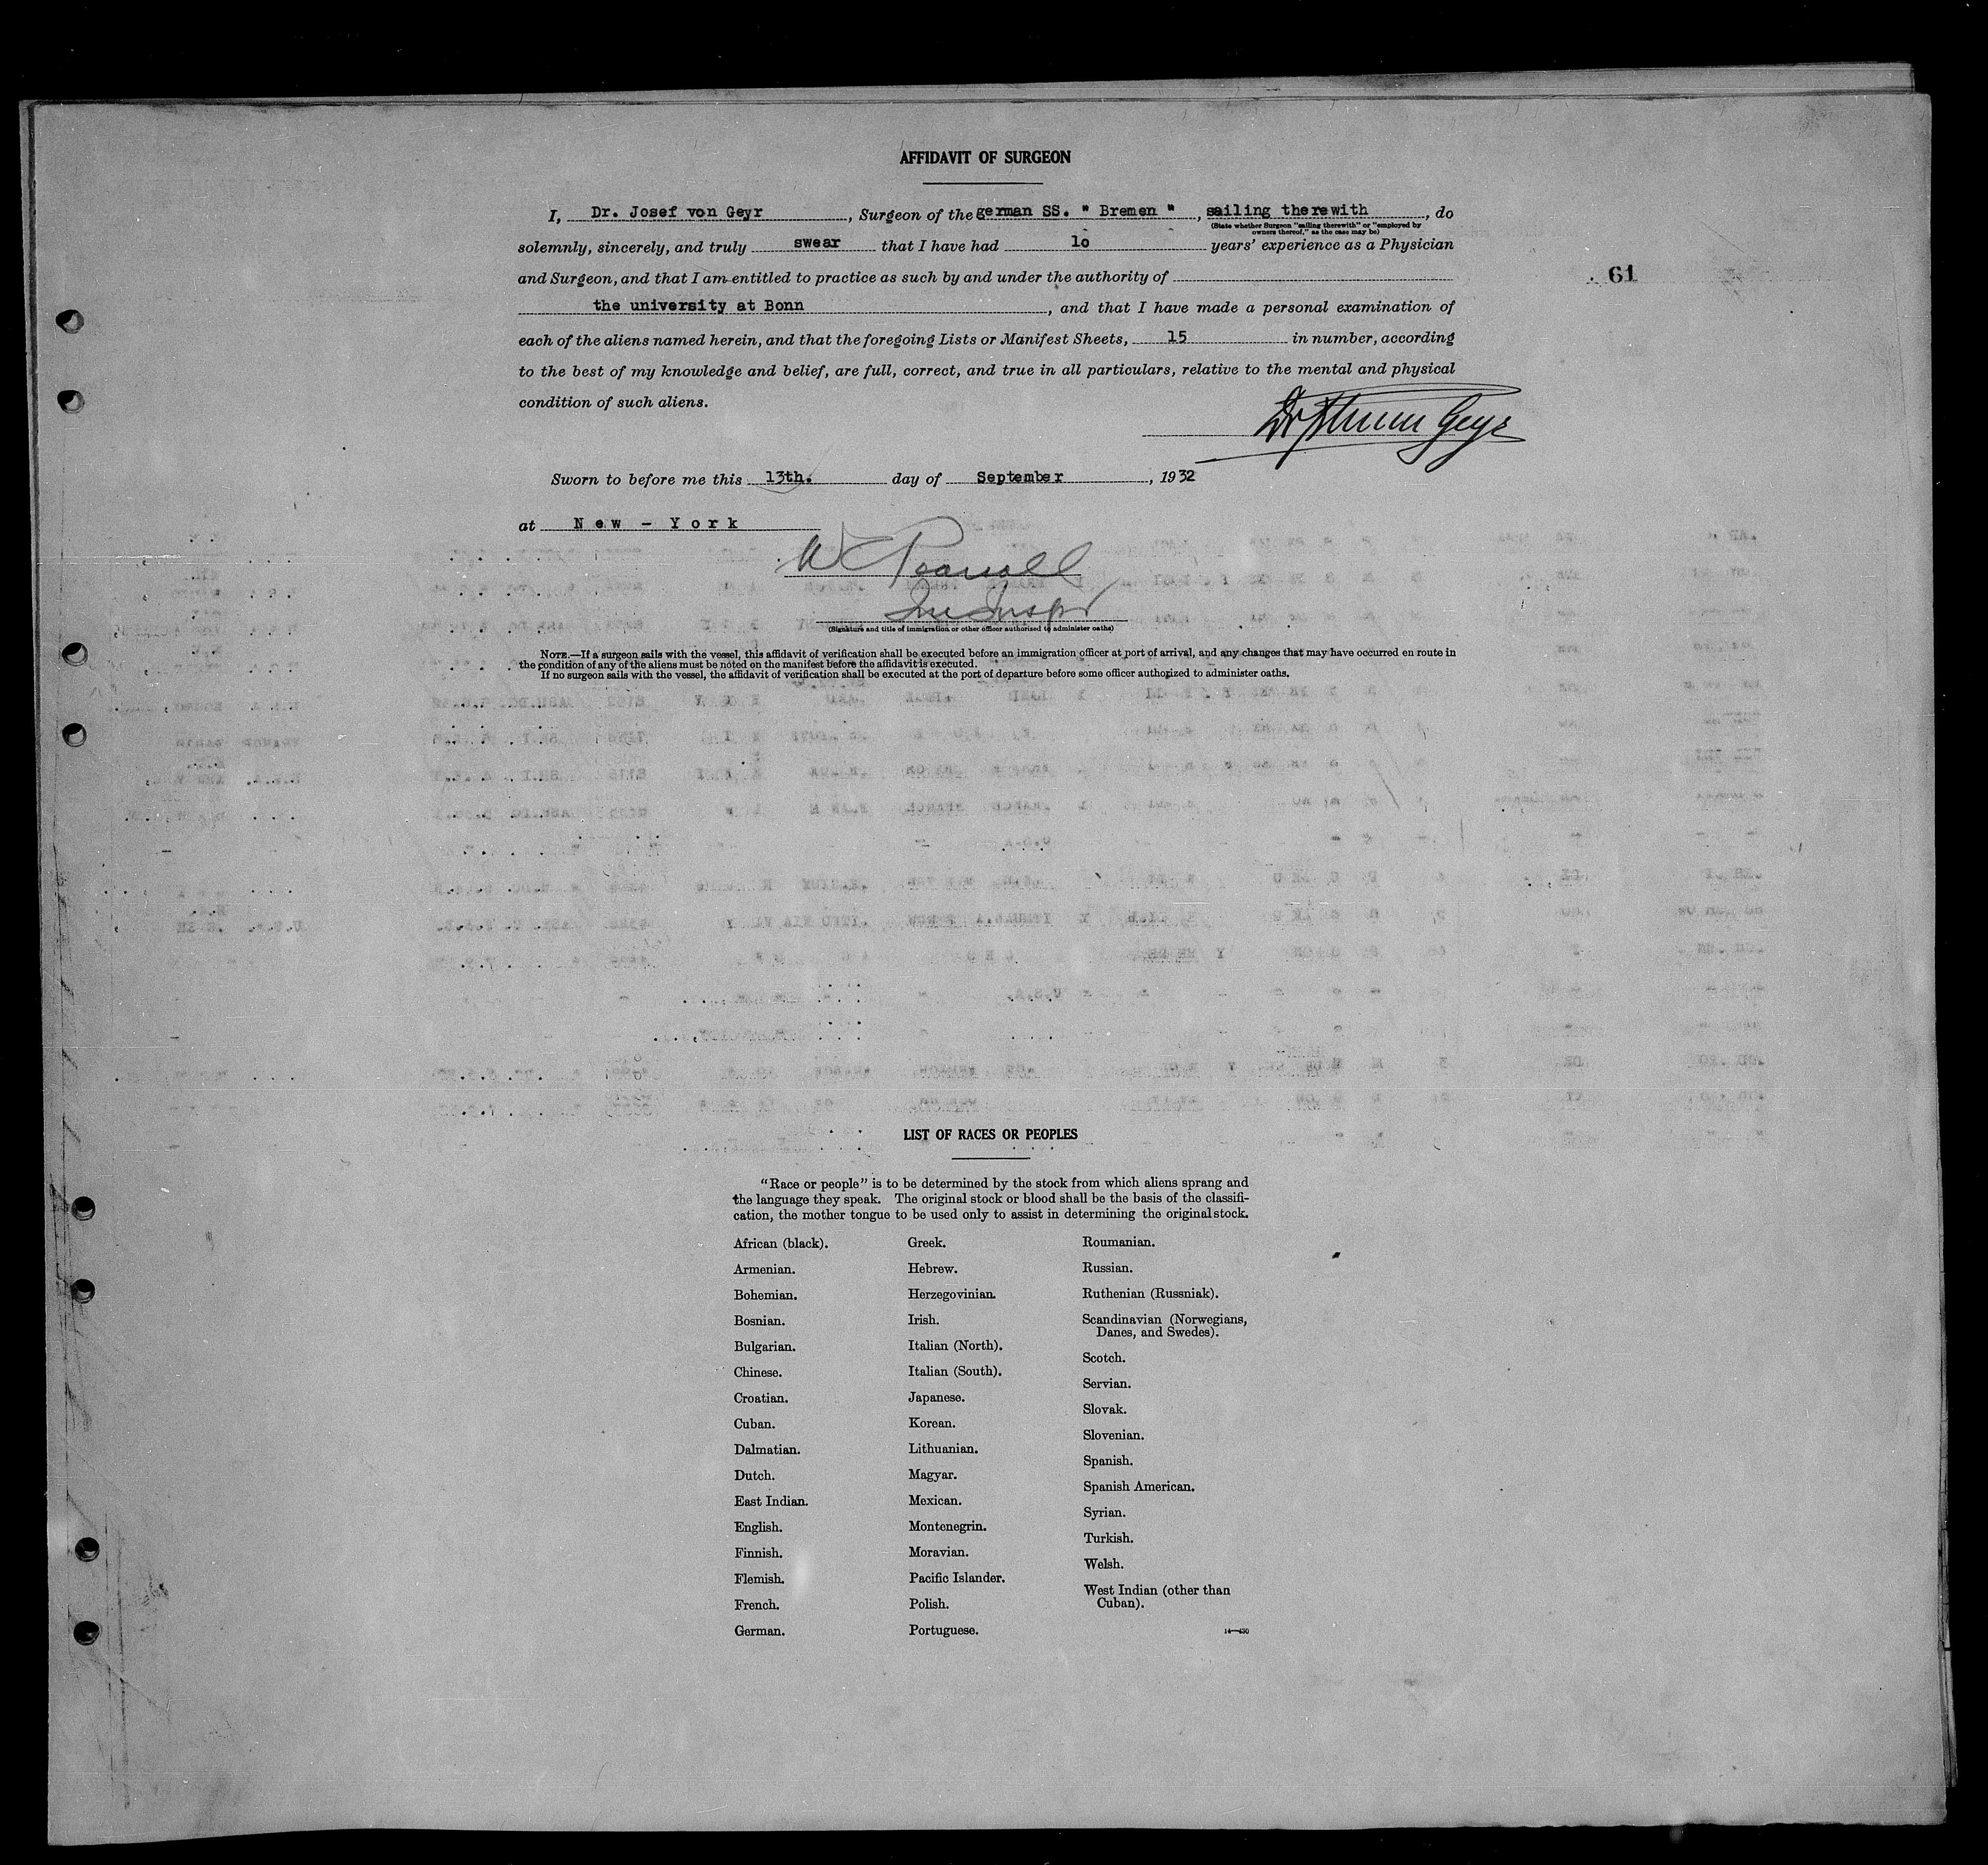 AFFIDAVIT OF SURGEON
I, Dr. Josef von Geyr, Surgeon of the german SS. " Bremen ", sailing therewith, do
(State whether Surgeon "sailing therewith" or "employed by
owners thereof," as the case may be)
solemnly, sincerely, and truly swear that I have had 1o years' experience as a Physician
and Surgeon, and that I am entitled to practice as such by and under the authority of
61
the university at Bonn, and that I have made a personal examination of
each of the aliens named herein, and that the foregoing Lists or Manifest Sheets, 15 in number, according
to the best of my knowledge and belief, are full, correct, and true in all particulars, relative to the mental and physical
condition of such aliens.
Dr Geyr
Sworn to before me this 13th. day of September, 1932
at New - York
W
Inspr
(Signature and title of immigration or other officer authorized to administer oaths)
NOTE.—If a surgeon sails with the vessel, this affidavit of verification shall be executed before an immigration officer at port of arrival, and any changes that may have occurred en route in
the condition of any of the aliens must be noted on the manifest before the affidavit is executed.
If no surgeon sails with the vessel, the affidavit of verification shall be executed at the port of departure before some officer authorized to administer oaths.
LIST OF RACES OR PEOPLES
"Race or people" is to be determined by the stock from which aliens sprang and
the language they speak. The original stock or blood shall be the basis of the classifi-
cation, the mother tongue to be used only to assist in determining the original stock.
African (black).
Armenian.
Bohemian.
Bosnian.
Bulgarian.
Chinese.
Croatian.
Cuban.
Dalmatian.
Dutch.
East Indian.
English.
Finnish.
Flemish.
French.
German.
Greek.
Hebrew.
Herzegovinian.
Irish.
Italian (North).
Italian (South).
Japanese.
Korean.
Lithuanian.
Magyar.
Mexican.
Montenegrin.
Moravian.
Pacific Islander.
Polish.
Portuguese.
Roumanian.
Russian.
Ruthenian (Russniak).
Scandinavian (Norwegians,
Danes, and Swedes).
Scotch.
Servian.
Slovak.
Slovenian.
Spanish.
Spanish American.
Syrian.
Turkish.
Welsh.
West Indian (other than
Cuban).
14—430